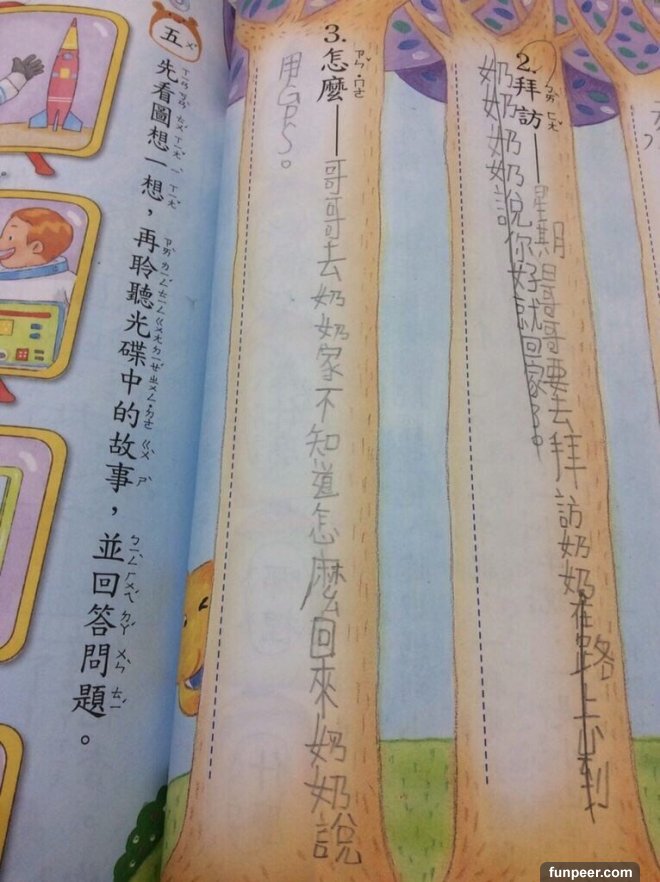 2.拜訪——星期日哥哥要去拜訪奶奶在路上到
奶奶奶奶說你好就回家了。
3.怎麼——哥哥去奶奶家不知道怎麼回來奶奶說
用GPS。
五 先看圖想一想，再聆聽光碟中的故事，並回答問題。
funpeer.com